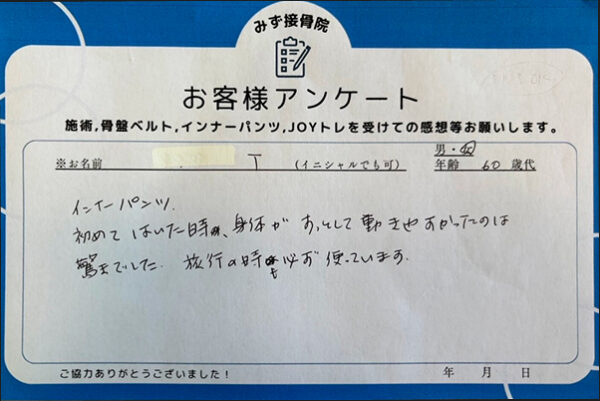 みず接骨院
お客様アンケート
施術,骨盤ベルト,インナーパンツ,JOYトレを受けての感想等お願いします。
男・女
※お名前 T (イニシャルでも可) 年齢 60 歳代
インナーパンツ.
初めてはいた時、身体がすっとして動きやすかったのは
驚きでした. 旅行の時も必ず使っています.
ご協力ありがとうございました! 年 月 日